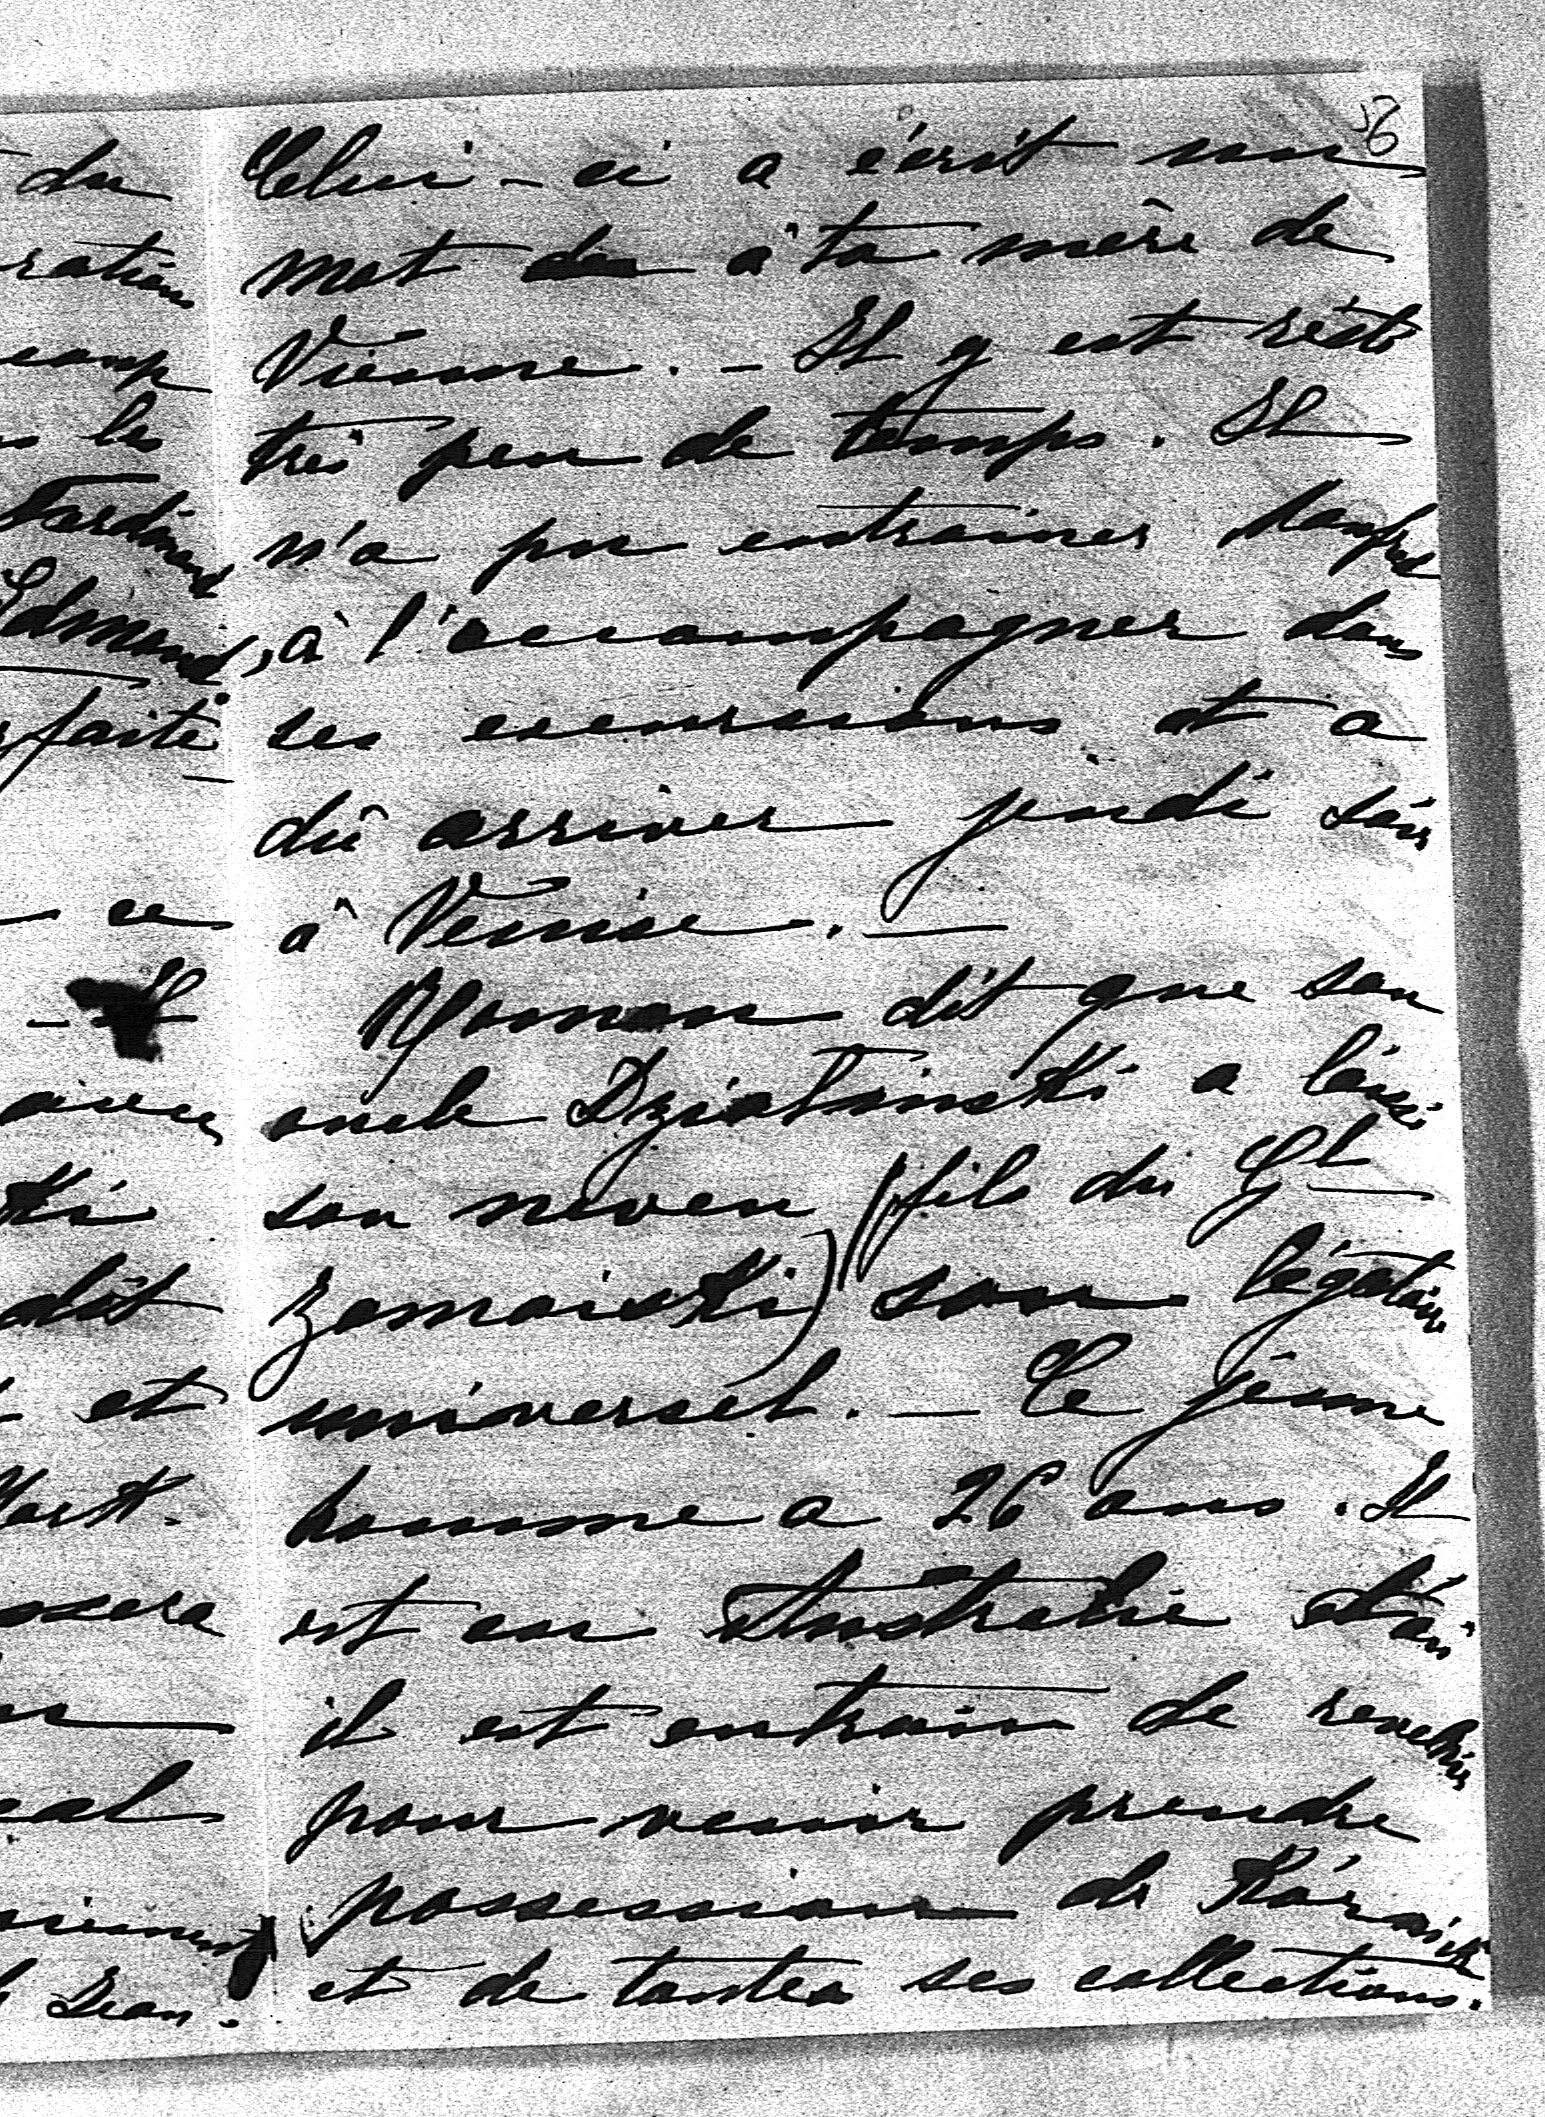 56
Celui-ci a écrit un
mot à ta mère de
Vienne. - Il y est resté
très peu de temps. Il
n'a pu entrainer
à l'accompagner dans
ses excursions et a
dû arriver jeudi soir
à Venise. —
Roman dit que son
oncle Dziatinski a laissé
son neveu (fils du Gl
Zamoiski) son légataire
universel. — Ce jeune
homme a 26 ans. Il
est en Australie d'où
il est entrain de revenir
pour venir prendre
possession de Kórnik
et de toutes ses collections.
du
ration
camp
les
Ferdinand
Edmond,
faite
—
ce
- Il
avec
ki
dit
et
Mark-
ssera
eal
Jean.